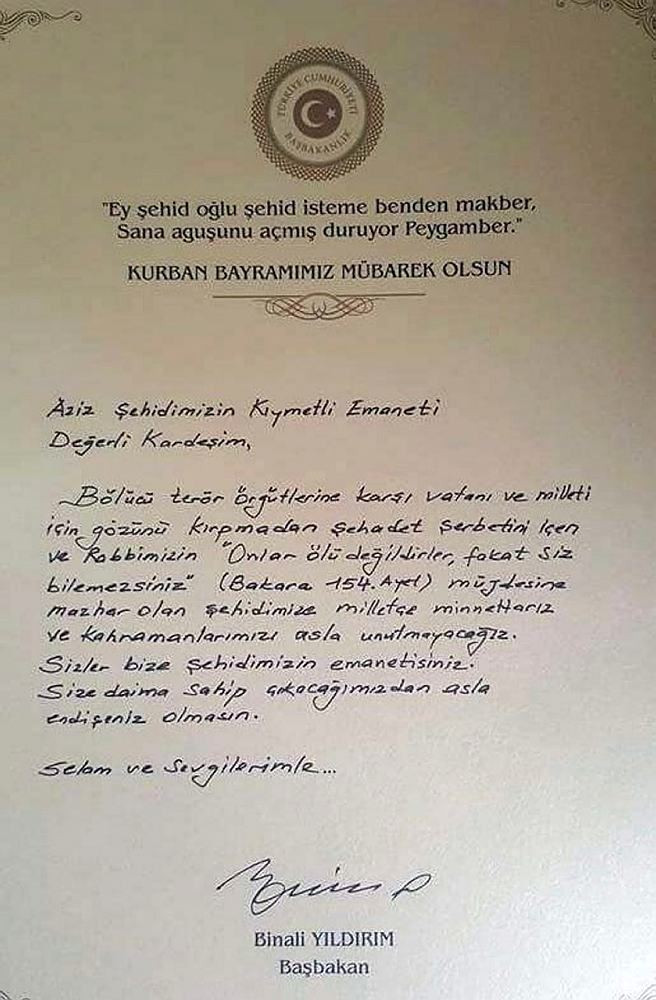 TÜRKİYE CUMHURİYETİ
BAŞBAKANLIK
"Ey şehid oğlu şehid isteme benden makber,
Sana aguşunu açmış duruyor Peygamber."
KURBAN BAYRAMIMIZ MÜBAREK OLSUN
Aziz Şehidimizin Kıymetli Emaneti
Değerli Kardeşim,
Bölücü terör örgütlerine karşı vatanı ve milleti
için gözünü kırpmadan şehadet şerbetini içen
ve Rabbimizin "Onlar ölü değildirler, fakat siz
bilemezsiniz" (Bakara 154. Ayet) müjdesine
mazhar olan şehidimize milletçe minnettarız
ve kahramanlarımızı asla unutmayacağız.
Sizler bize şehidimizin emanetisiniz.
Size daima sahip çıkacağımızdan asla
endişeniz olmasın.
Selam ve Sevgilerimle...
Binali YILDIRIM
Başbakan